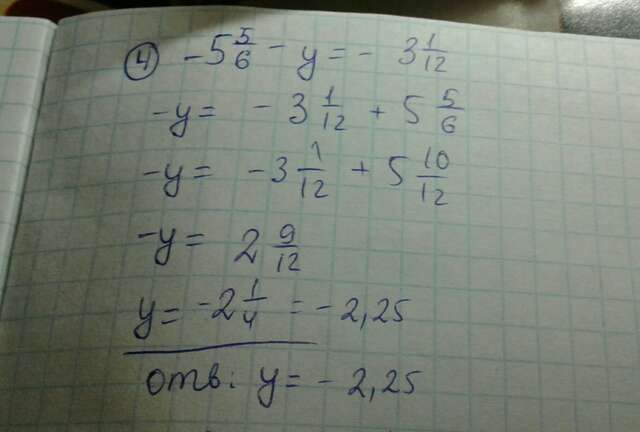 ④ -5 5/6 - y = - 3 1/12
-y = - 3 1/12 + 5 5/6
-y = -3 1/12 + 5 10/12
-y = 2 9/12
y = -2 1/4 = -2,25
отв: y = -2,25